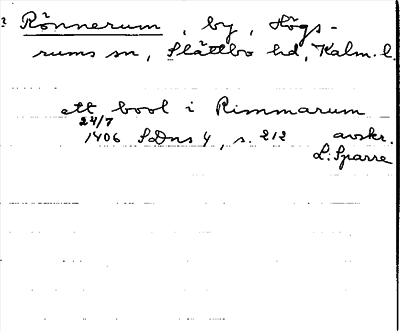 ? Rönnerum, by, Högs-
rums sn, Slättbo hd, Kalm. l.
ett bool i Rimmarum
24/7
1406 SDns 4, s. 212 avskr.
L. Sparre